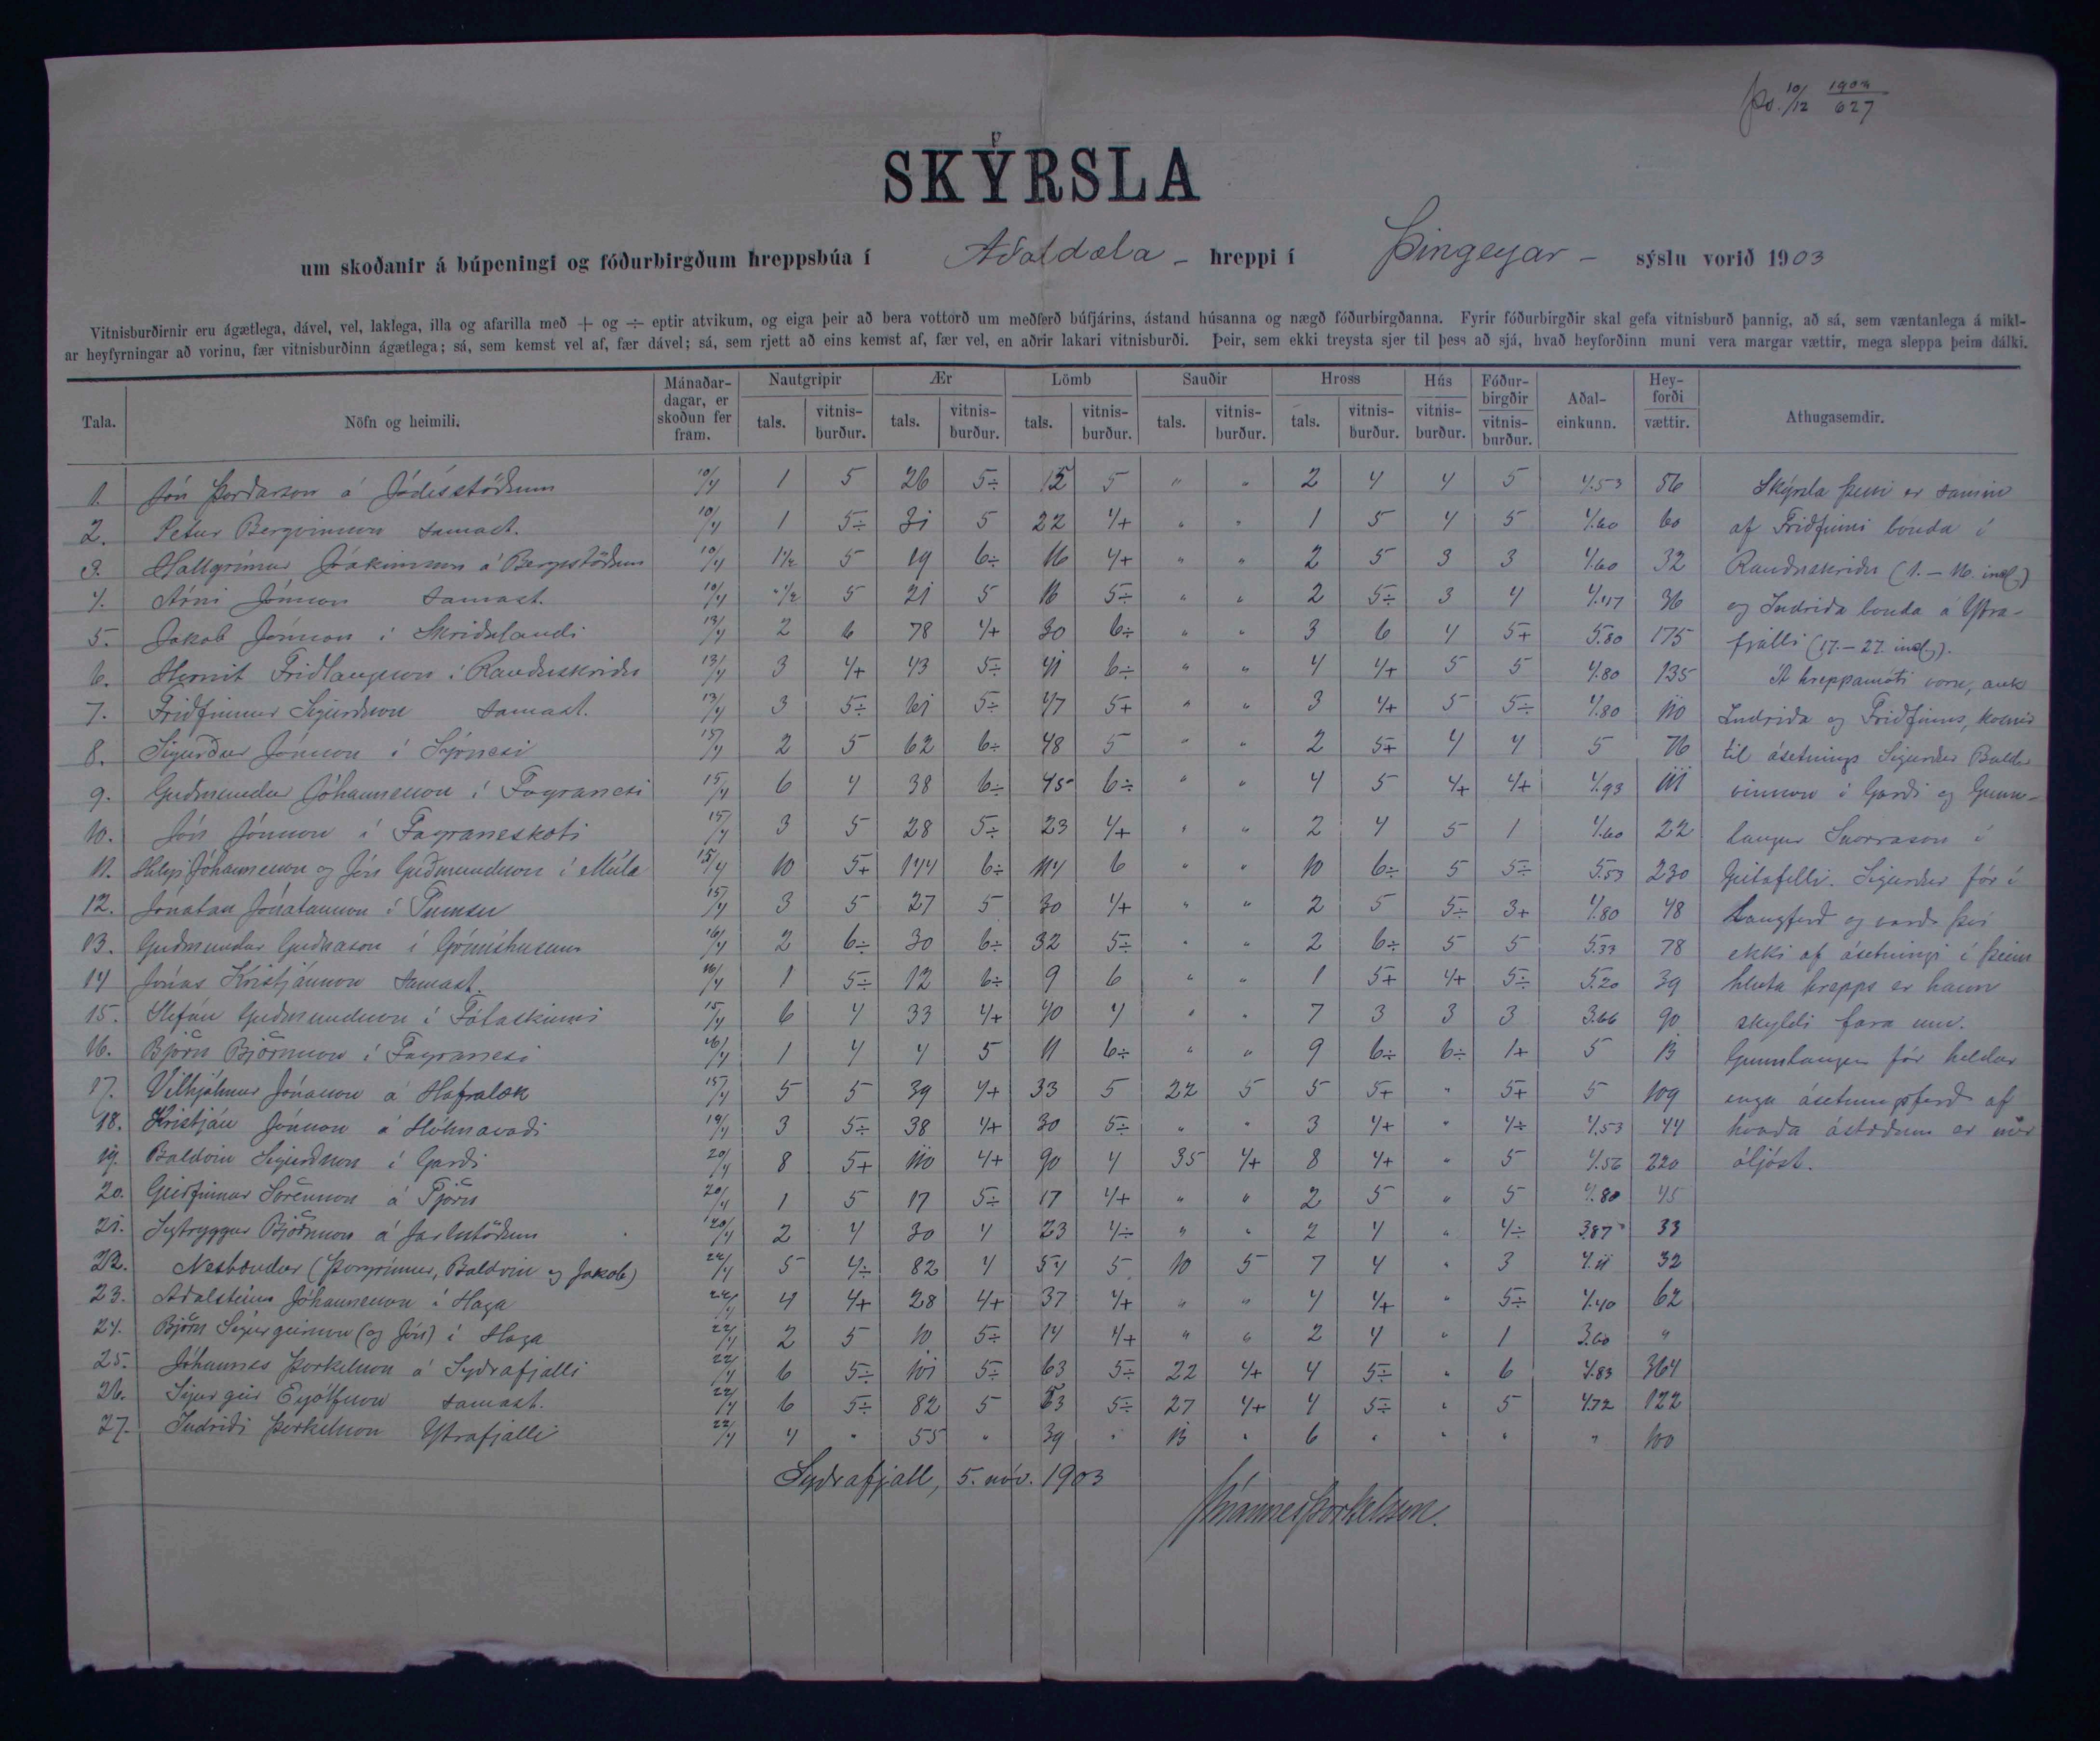 Þs. 10/12 1903/627
SKÝRSLA
um skoðanir á búpeningi og fóðurbirgðum hreppsbúa í Aðaldæla - hreppi í Þingeyar - sýslu vorið 1903
Vitnisburðirnir eru ágætlega, dável, vel, laklega, illa og afarilla með + og ÷ eptir atvikum, og eiga þeir að bera vottorð um meðferð búfjárins, ástand húsanna og nægð fóðurbirgðanna. Fyrir fóðurbirgðir skal gefa vitnisburð þannig, að sá, sem væntanlega á mikl-
ar heyfyrningar að vorinu, fær vitnisburðinn ágætlega; sá, sem kemst vel af, fær dável; sá, sem rjett að eins kemst af, fær vel, en aðrir lakari vitnisburði. Þeir, sem ekki treysta sjer til þess að sjá, hvað heyforðinn muni vera margar vættir, mega sleppa þeim dálki.
Tala. Nöfn og heimili. Mánaðar-dagar, er skoðun fer fram. Nautgripir Ær Lömb Sauðir Hross Hús Fóður-birgðir Aðal-einkunn. Hey-forði vættir. Athugasemdir.
tals. vitnis-burður. tals. vitnis-burður. tals. vitnis-burður. tals. vitnis-burður. tals. vitnis-burður. vitnis-burður. vitnis-burður.
1. Jón Þórðarson á Jódísstöðum 10/4 1 5 26 5÷ 15 5 " " 2 4 4 5 4.53 56
2. Petur Bergvinsson samast. 10/4 1 5÷ 31 5 22 4+ " " 1 5 4 5 4.60 60
3. Hallgrímur Jóakimsson á Bergsstöðum 10/4 1½ 5 19 6÷ 16 4+ " " 2 5 3 3 4.60 32
4. Árni Jónsson samast. 10/4 "½ 5 21 5 16 5÷ " " 2 5÷ 3 4 4.47 36
5. Jakob Jónsson í Skriðulandi 13/4 2 6 78 4+ 30 6÷ " " 3 6 4 5+ 5.80 175
6. Hernit Friðlaugsson í Rauðuskriðu 13/4 3 4+ 43 5÷ 41 6÷ " " 4 4+ 5 5 4.80 135
7. Friðfinnur Sigurðsson samast. 13/4 3 5÷ 61 5÷ 47 5+ " " 3 4+ 5 5÷ 4.80 110
8. Sigurður Jónsson í Sýrnesi 15/4 2 5 62 6÷ 48 5 " " 2 5+ 4 4 5 76
9. Guðmundur Jóhannesson í Fagranesi 15/4 6 4 38 6÷ 45 6÷ " " 4 5 4+ 4+ 4.93 111
10. Jón Jónsson í Fagraneskoti 15/4 3 5 28 5÷ 23 4+ " " 2 4 5 1 4.60 22
11. Helgi Jóhannesson og Jón Guðmundsson í Múla 15/4 10 5+ 144 6÷ 114 6 " " 10 6÷ 5 5÷ 5.53 230
12. Jónatan Jónatansson í Tumsu 15/4 3 5 27 5 30 4+ " " 2 5 5÷ 3+ 4.80 48
13. Guðmundur Guðnason í Grímshúsum 16/4 2 6÷ 30 6÷ 32 5÷ " " 2 6÷ 5 5 5.33 78
14 Jónas Kristjánsson samast. 16/4 1 5÷ 12 6÷ 9 6 " " 1 5+ 4+ 5÷ 5.20 39
15. Stefán Guðmundsson í Fótaskinni 15/4 6 4 33 4+ 40 4 " " 7 3 3 3 3.66 90
16. Björn Björnsson í Fagranesi 16/4 1 4 4 5 11 6÷ " " 9 6÷ 6÷ 1+ 5 13
17. Vilhjálmur Jónasson á Hafralæk 15/4 5 5 39 4+ 33 5 22 5 5 5+ " 5+ 5 109
18. Kristján Jónsson á Hólmavaði 19/4 3 5÷ 38 4+ 30 5÷ " " 3 4+ " 4÷ 4.53 44
19. Baldvin Sigurðsson í Garði 20/4 8 5+ 110 4+ 90 4 35 4+ 8 4+ " 5 4.56 220
20. Geirfinnur Sörensson á Tjörn 20/4 1 5 17 5÷ 17 4+ " " 2 5 " 5 4.80 45
21. Sigtryggur Björnsson á Jarlsstöðum 20/4 2 4 30 4 23 4÷ " " 2 4 " 4÷ 3.87 33
22. Nesbændur (Þorgrímur, Baldvin og Jakob) 22/4 5 4÷ 82 4 54 5 10 5 7 4 " 3 4.11 32
23. Aðalsteinn Jóhannesson í Haga 22/4 4 4+ 28 4+ 37 4+ " " 4 4+ " 5÷ 4.40 62
24. Björn Sigurgeirsson (og Jón) í Haga 22/4 2 5 10 5÷ 14 4+ " " 2 4 " 1 3.60 "
25. Jóhannes Þorkelsson á Syðrafjalli 22/4 6 5÷ 101 5÷ 63 5÷ 22 4+ 4 5÷ " 6 4.83 364
26. Sigurgeir Eyjólfsson samast. 22/4 6 5÷ 82 5 53 5÷ 27 4+ 4 5÷ " 5 4.72 122
27. Indriði Þorkelsson Ytrafjalli 22/4 4 " 55 " 39 " 13 " 6 " " " " 100
Skýrsla þessi er samin
af Friðfinni bónda í
Rauðuskriðu (1. - 16. incl.)
og Indriða bónda á Ytra-
fjalli (17. - 27. incl.).
Á hreppamóti voru, auk
Indriða og Friðfinns, kosnir
til ásetnings Sigurður Bald-
vinsson í Garði og Gunn-
laugur Snorrason í
Geitafelli. Sigurður fór í
langferð og varð því
ekki af ásetningi í þeim
hluta hrepps er hann
skyldi fara um.
Gunnlaugur fór heldur
enga ásetningsferð af
hvaða ástæðum er mér
óljóst.
Syðrafjall, 5. nóv. 1903
Jóhannes Þorkelsson.